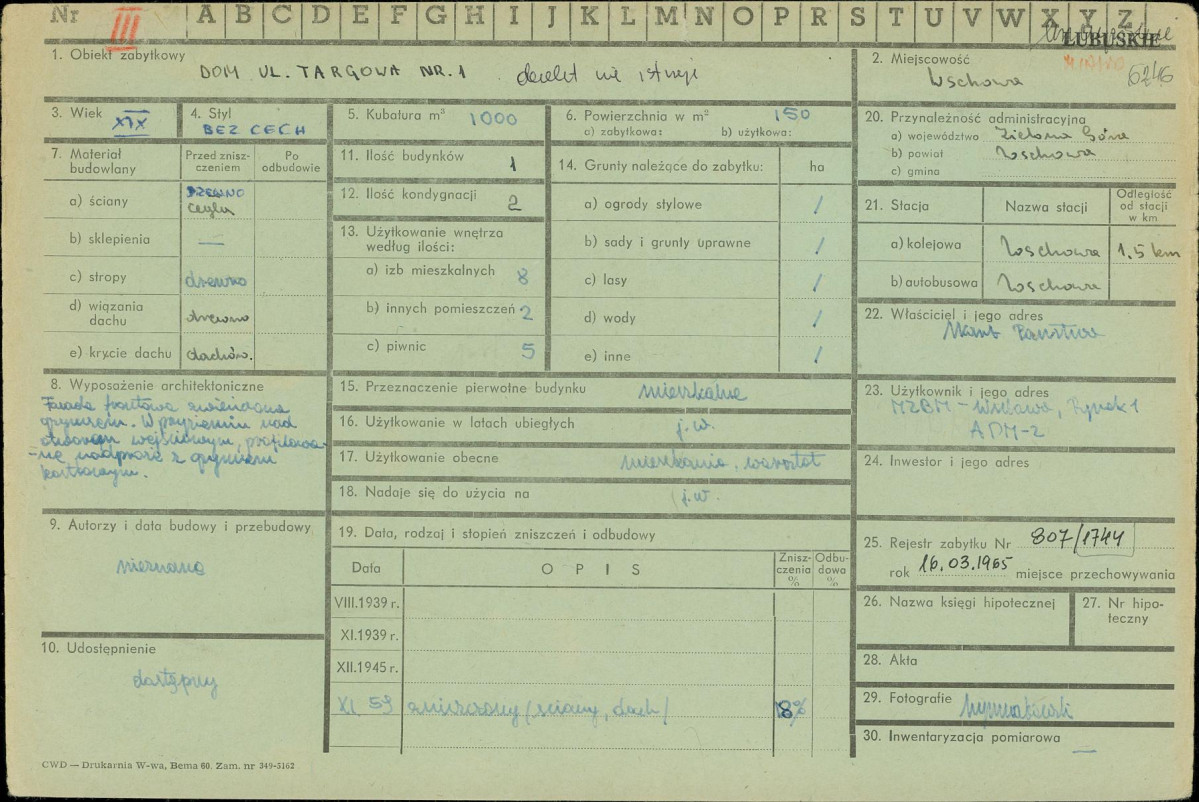 Nr III A B C D E F G H I J K L M N O P R S T U V W X Y Z
LUBUSKIE
1. Obiekt zabytkowy
DOM UL. TARGOWA NR. 1 obiekt nie istnieje
2. Miejscowość
Wschowa
6246
3. Wiek
XIX
4. Styl
BEZ CECH
5. Kubatura m³ 1000
6. Powierzchnia w m² 150
a) zabytkowa: b) użytkowa:
7. Materiał budowlany
Przed zniszczeniem
Po odbudowie
a) ściany
DREWNO
cegła
b) sklepienia —
c) stropy drewno
d) wiązania dachu drewno
e) krycie dachu dachów.
8. Wyposażenie architektoniczne
Fasada frontowa zwieńczona
gzymsem. W przyziemiu nad
otworem wejściowym, profilowa-
-ne nadproże z gzymsem
9. Autorzy i data budowy i przebudowy
nieznana
10. Udostępnienie
dostępny
11. Ilość budynków 1
12. Ilość kondygnacji 2
13. Użytkowanie wnętrza
według ilości:
a) izb mieszkalnych 8
b) innych pomieszczeń 2
c) piwnic 5
14. Grunty należące do zabytku: ha
a) ogrody stylowe /
b) sady i grunty uprawne /
c) lasy /
d) wody /
e) inne /
15. Przeznaczenie pierwotne budynku mieszkalne
16. Użytkowanie w latach ubiegłych j.w.
17. Użytkowanie obecne mieszkanie, warsztat
18. Nadaje się do użycia na j.w.
19. Data, rodzaj i stopień zniszczeń i odbudowy
Data OPIS Zniszczenia % Odbudowa %
VIII.1939 r.
XI.1939 r.
XII.1945 r.
XI 59 zniszczony (ściany, dach) 18%
20. Przynależność administracyjna
a) województwo Zielona Góra
b) powiat Wschowa
c) gmina
21. Stacja Nazwa stacji Odległość od stacji w km
a) kolejowa Wschowa 1,5 km
b) autobusowa Wschowa
22. Właściciel i jego adres
Skarb Państwa
23. Użytkownik i jego adres
MZBM - Wschowa, Rynek 1
ADM-2
24. Inwestor i jego adres
25. Rejestr zabytku Nr 807/1744
rok 16.03.1965 miejsce przechowywania
26. Nazwa księgi hipotecznej
27. Nr hipoteczny
28. Akta
29. Fotografie
30. Inwentaryzacja pomiarowa —
CWD — Drukarnia W-wa, Bema 60. Zam. nr 349-5162